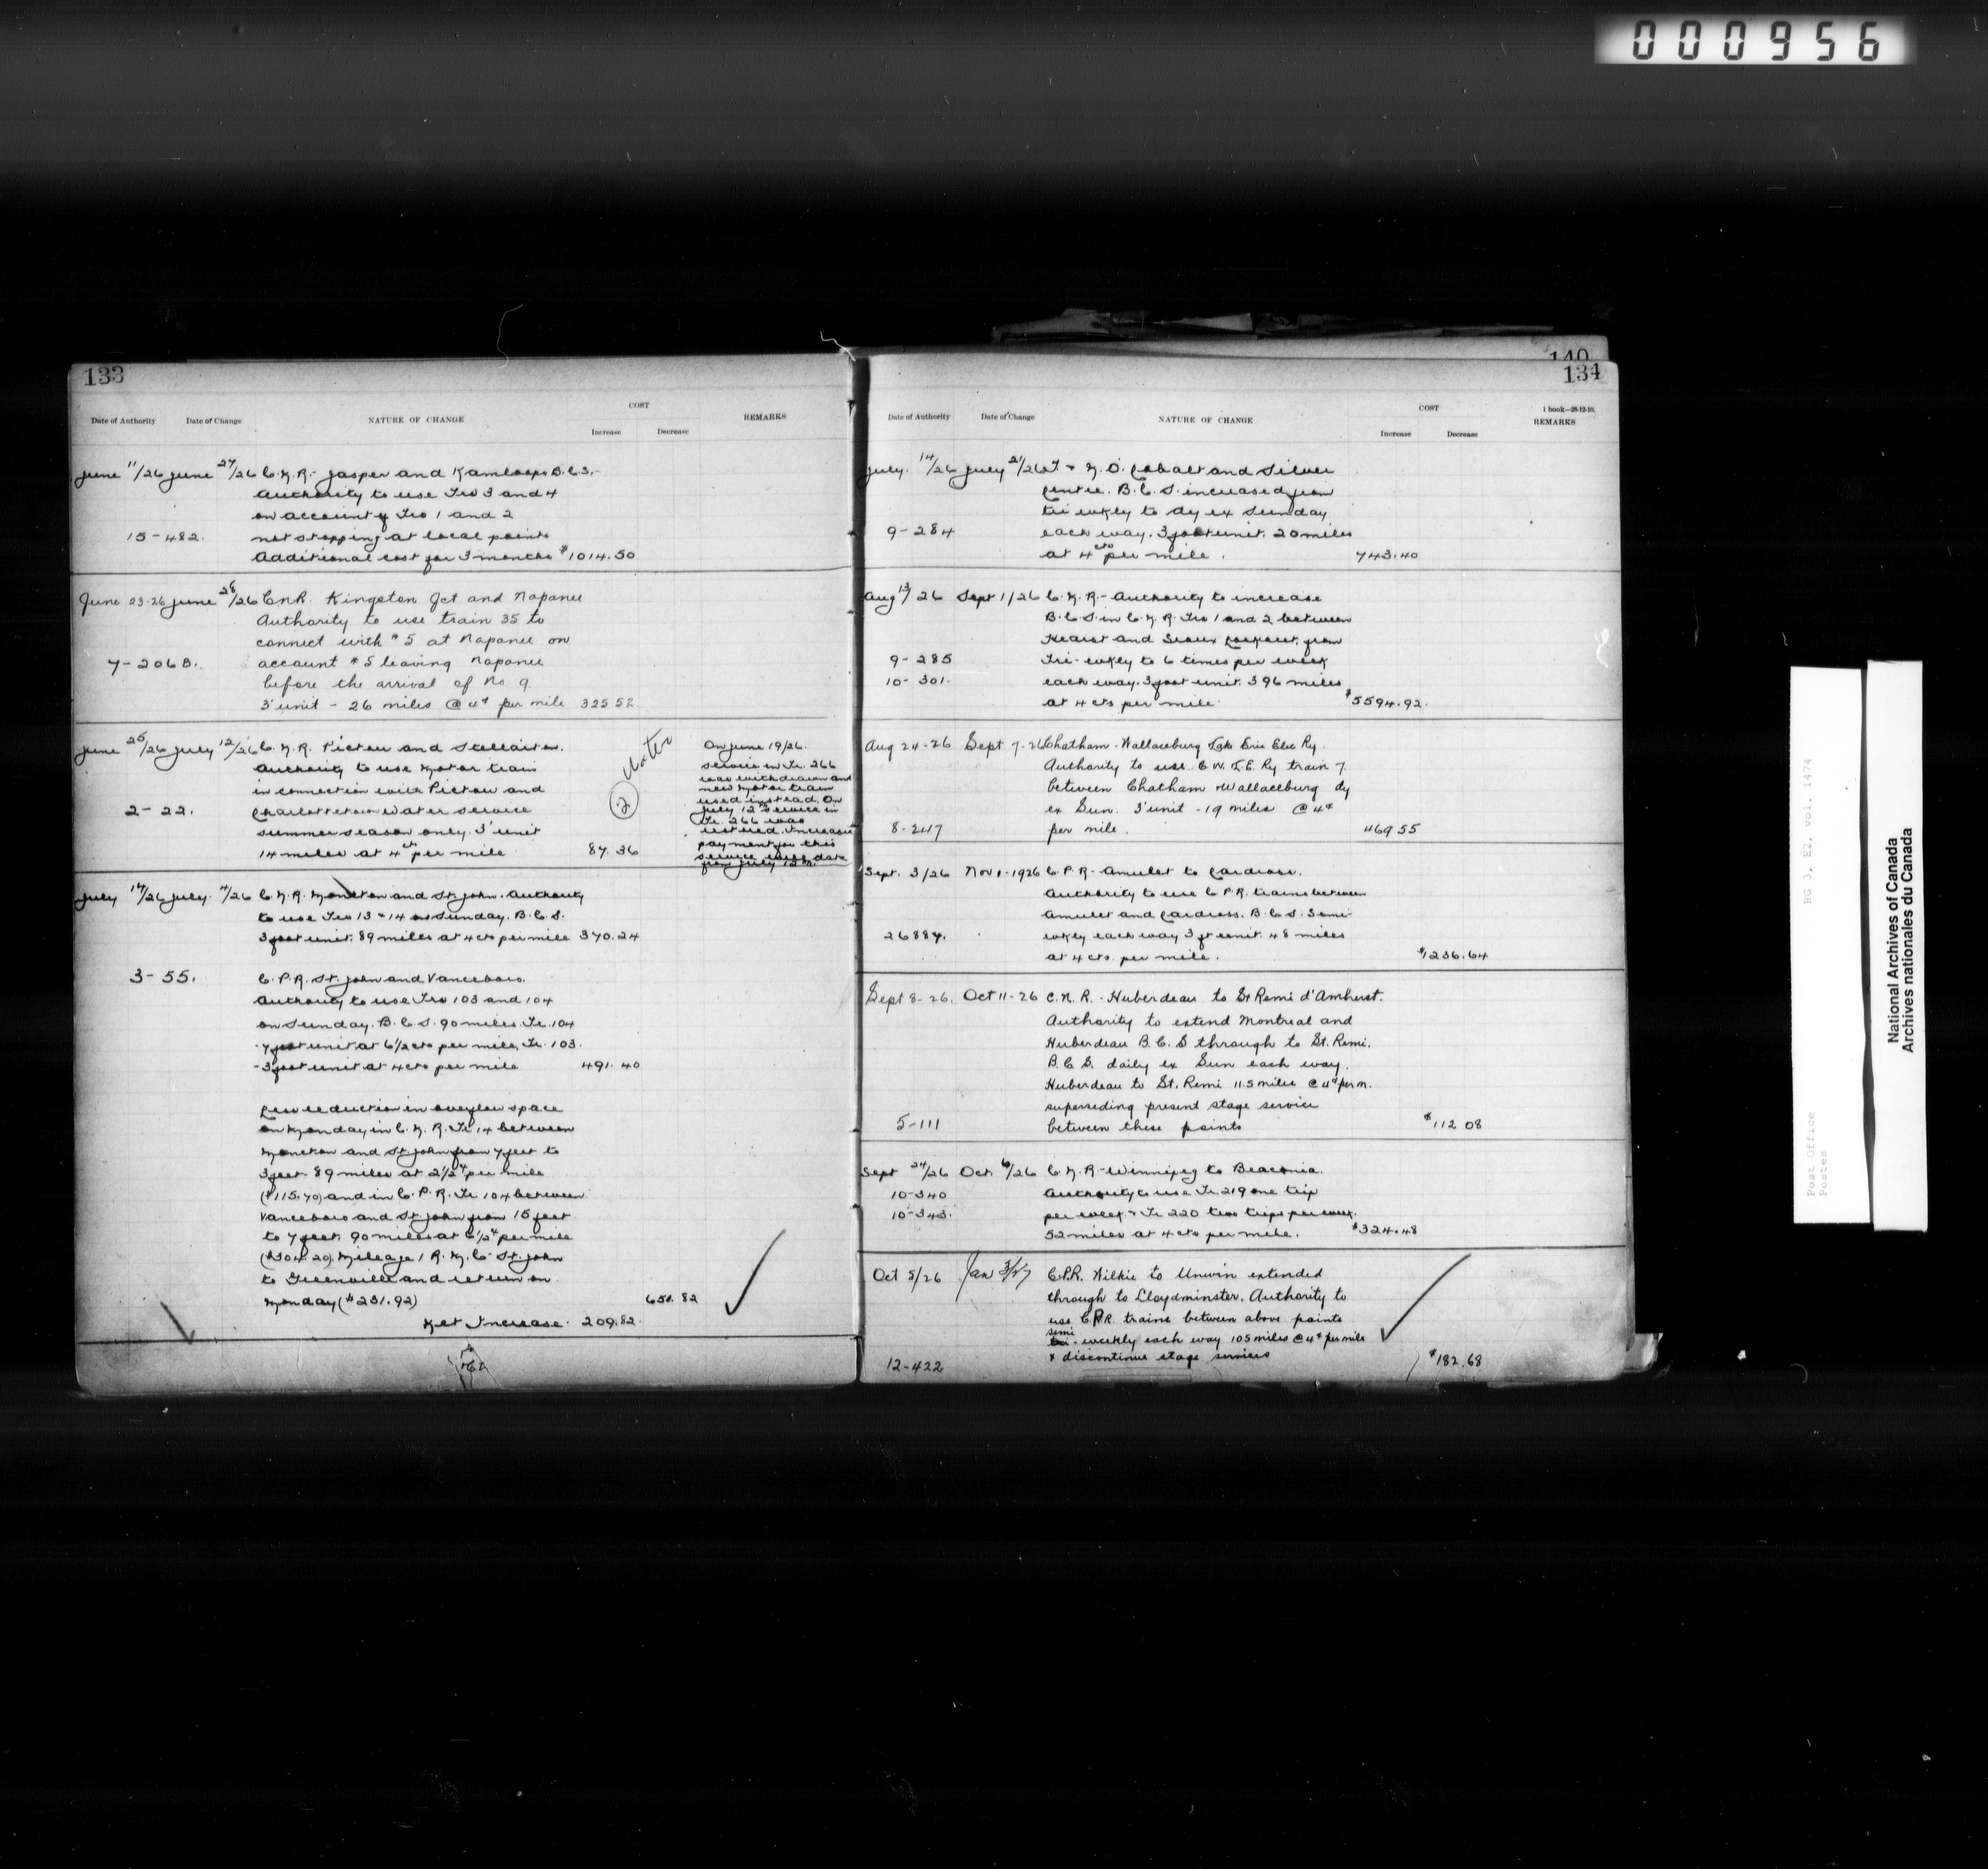 000956
133
COST
Date of Authority Date of Change NATURE OF CHANGE Increase Decrease REMARKS
June 11/26 June 27/26 C.N.R. - Jasper and Kamloops B.C.S. -
Authority to use Trs 3 and 4
on account of Trs 1 and 2
15-482. not stopping at local points
Additional cost for 3 months $1014.50
June 23-26 June 28/26 C.N.R. Kingston Jct and Napanee
Authority to use train 35 to
connect with #5 at Napanee on
7-206B. account #5 leaving Napanee
before the arrival of No 9.
3' unit - 26 miles @ 4¢ per mile 325 52
June 25/26 July 12/26 C.N.R. Pictou and Stellarton.
Authority to use Motor train
in connection with Pictou and
2-22. Charlottetown Water service
summer season only. 3' unit
14 miles at 4 cts per mile 87.36
Water
2
On June 19/26.
service in Tr. 266
was withdrawn and
new Motor train
used instead. On
July 12th service in
Tr. 266 was
restored. Increase
payment for this
service date
from July 12th.
July 14/26 July 4/26 C.N.R. Moncton and St. John. Authority
to use Trs 13 & 14 on Sunday. B.C.S.
3 foot unit. 89 miles at 4 cts per mile 370.24
3-55. C.P.R. St. John and Vanceboro.
Authority to use Trs 103 and 104
on Sunday. B.C.S. 90 miles. Tr. 104
- 7 foot unit at 6 1/2 cts per mile, Tr. 103.
- 3 foot unit at 4 cts per mile 491.40
Less reduction in overflow space
on Monday in C.N.R. Tr. 14 between
Moncton and St. John from 7 feet to
3 feet. 89 miles at 2 1/2¢ per mile
($115.70) and in C.P.R. Tr. 104 between
Vanceboro and St. John from 15 feet
to 7 feet. 90 miles at 6 1/2¢ per mile
($304.20). Mileage 1 R.M.C. St. John
to Greenville and return on
Monday ($231.92) 651.82
Net Increase. 209.82.
140
134
COST
1 book—28-12-10.
Date of Authority Date of Change NATURE OF CHANGE Increase Decrease REMARKS
July. 14/26 July 21/26 T. & N.O. Cobalt and Silver
Centre. B.C.S. increased from
tri wkly to dy ex Sunday
9-284 each way. 3 foot unit. 20 miles
at 4 cts per mile. 743.40
Aug 13/26 Sept 1/26 C.N.R. - Authority to increase
B.C.S. in C.N.R. Trs 1 and 2 between
Hearst and Sioux Lookout, from
9-285 Tri-wkly to 6 times per week
10-301. each way. 3 foot unit. 396 miles
at 4 cts per mile. $5594.92.
Aug 24-26 Sept 7-26 Chatham-Wallaceburg Lake Erie Elec Ry.
Authority to use C.W. & L.E. Ry train 7.
between Chatham & Wallaceburg dy
ex Sun. 3' unit - 19 miles @ 4¢
8-247 per mile. 469 55
Sept. 3/26 Nov 1-1926 C.P.R - Amulet to Cardross.
Authority to use C.P.R. trains between
Amulet and Cardross. B.C.S. Semi-
26887. wkly each way 3 ft unit. 48 miles
at 4 cts. per mile. $1236.64
Sept 8-26. Oct 11-26 C.N.R. - Huberdeau to St Remi d'Amherst.
Authority to extend Montreal and
Huberdeau B.C.S through to St. Remi.
B.C.S. daily ex Sun each way.
Huberdeau to St. Remi 11.5 miles @ 4¢ per m.
superseding present stage service
5-111 between these points $112 08
Sept 24/26 Oct. 6/26 C.N.R - Winnipeg to Beaconia.
10-340 Authority to use Tr. 219 one trip
10-343. per week & Tr 220 two trips per week.
52 miles at 4 cts per mile. $324.48
Oct 5/26 Jan 3/27 C.P.R. Wilkie to Unwin extended
through to Lloydminster. Authority to
use C.P.R. trains between above points
semi
tri-weekly each way 105 miles @ 4¢ per mile
12-422 & discontinue stage services $182.68
RG 3, E2, vol. 1474
Post Office
Postes
National Archives of Canada
Archives nationales du Canada